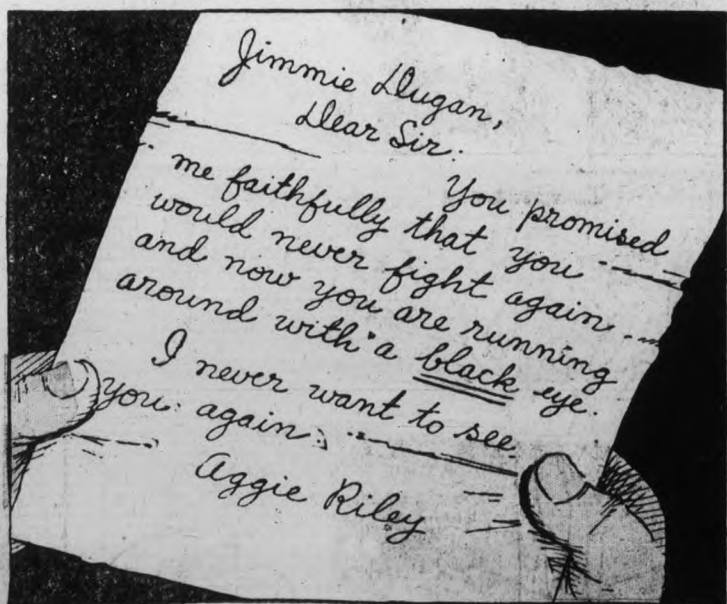 Jimmie Dugan,
Dear Sir:
You promised
me faithfully that you
would never fight again
and now you are running
around with a black eye.
I never want to see
you again.
Aggie Riley